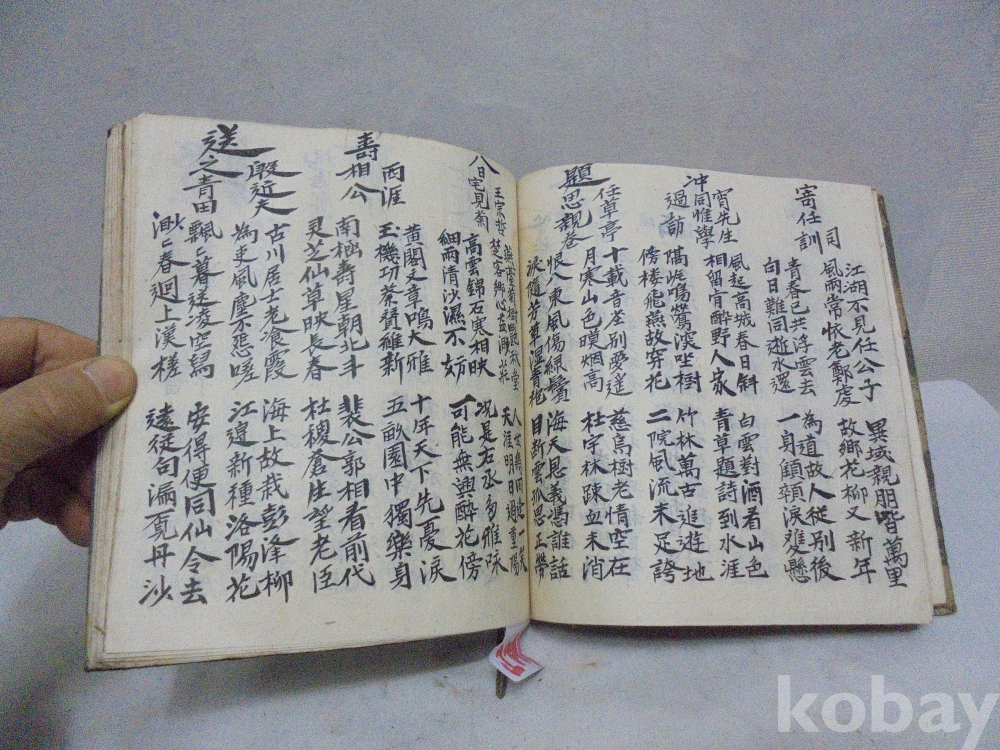 寄任司訓
江湖不見任公子
風雨常懷老鄭虔
青春已共浮雲去
向日難同逝水還
異域親朋皆萬里
故鄉花柳又新年
為道故人從別後
一身顦顇淚雙懸
冲宵先生同惟學過訪
風起高城春日斜
相留宵醉野人家
隔 鳴鶯深坐樹
傍樓飛燕故穿花
白雲對酒看山色
青草題詩到水涯
竹林萬古追遊地
二院風流未足誇
題任草亭思親卷
十載音容別愛遙
月寒山色暝烟高
恨入東風傷綠鬢
淚隨芳草濕青袍
慈烏樹老情空在
杜宇林疎血未消
海天恩義憑誰話
目斷雲孤思正勞
八日王宗哲宅見菊
菊樹 秋堂
楚客鄉心
高雲錦石寒相映
細雨清沙濕不妨
人生幾回 一笑
天涯明日過重陽
況是右丞多雅咏
可能無興醉花傍
壽西涯相公
黃閣文章鳴大雅
玉機功業贊維新
南極壽星朝北斗
灵芝仙草映長春
十年天下先憂淚
五畝園中獨樂身
裴公郭相看前代
杜稷蒼生望老臣
送殷近夫之青田
古川居士老飡霞
為吏風塵不忍嗟
飄〻暮送凌空舄
渺〻春迴上漢槎
海上故栽彭澤柳
江邊新種洛陽花
安得便同仙令去
遠從句漏覓丹沙
kobay